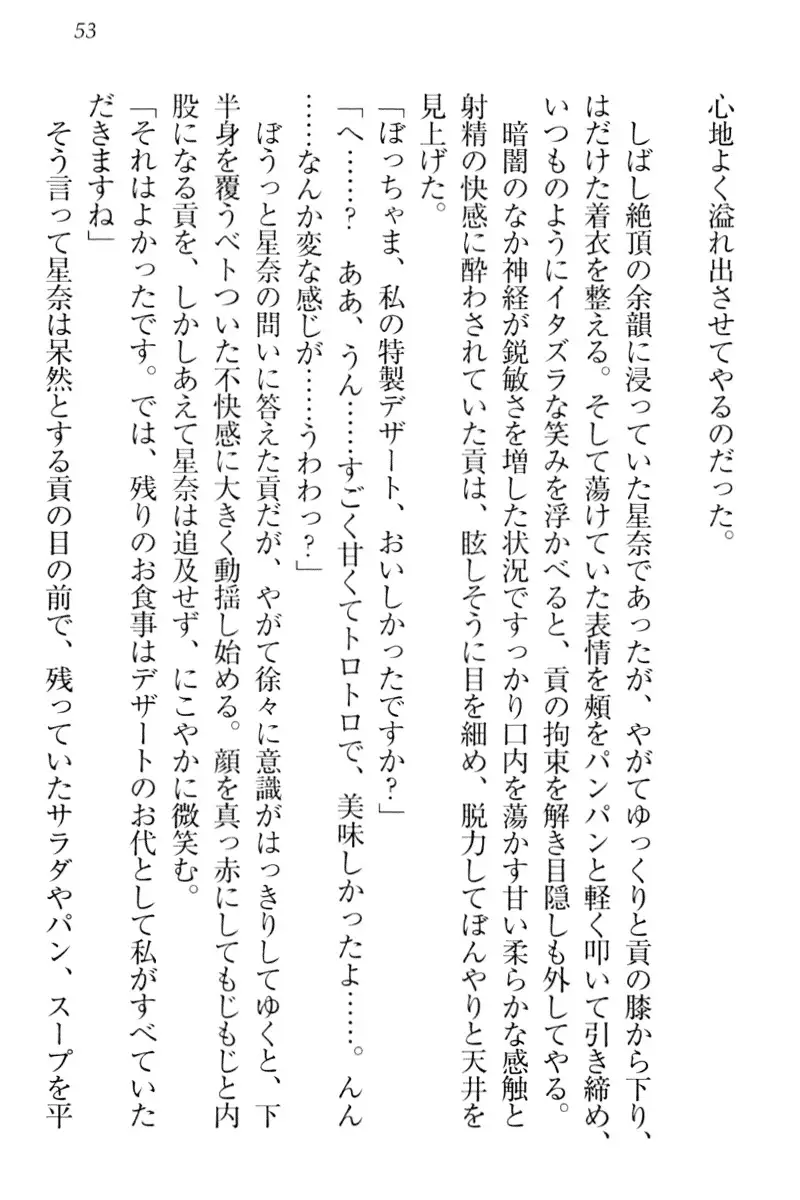 53
心地よく溢れ出させてやるのだった。
しばし絶頂の余韻に浸っていた星奈であったが、やがてゆっくりと貢の膝から下り、
はだけた着衣を整える。そして蕩けていた表情を頬をパンパンと軽く叩いて引き締め、
いつものようにイタズラな笑みを浮かべると、貢の拘束を解き目隠しも外してやる。
暗闇のなか神経が鋭敏さを増した状況ですっかり口内を蕩かす甘い柔らかな感触と
射精の快感に酔わされていた貢は、眩しそうに目を細め、脱力してぼんやりと天井を
見上げた。
「ぼっちゃま、私の特製デザート、おいしかったですか？」
「へ……？　ああ、うん……すごく甘くてトロトロで、美味しかったよ……。んん
……なんか変な感じが……うわわっ？」
ぼうっと星奈の問いに答えた貢だが、やがて徐々に意識がはっきりしてゆくと、下
半身を覆うベトついた不快感に大きく動揺し始める。顔を真っ赤にしてもじもじと内
股になる貢を、しかしあえて星奈は追及せず、にこやかに微笑む。
「それはよかったです。では、残りのお食事はデザートのお代として私がすべていた
だきますね」
そう言って星奈は呆然とする貢の目の前で、残っていたサラダやパン、スープを平